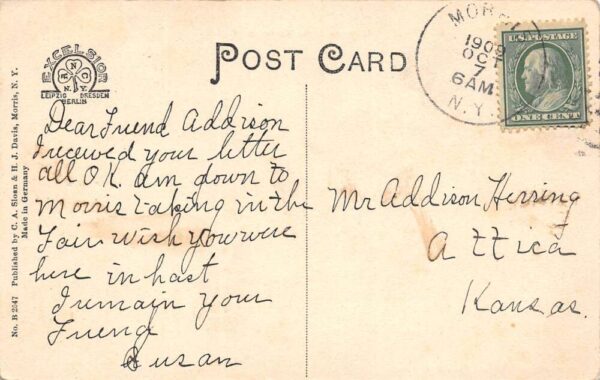 EXCELSIOR
R N C
N.Y.
LEIPZIG DRESDEN
BERLIN
POST CARD
MORR
1909
OCT
7
6AM
N.Y.
U.S. POSTAGE
ONE CENT
Dear Friend Addison
I received your letter
all O.K. am down to
Morris taking in the
Fair wish you were
here in hast
I remain your
Friend
Susan
Mr Addison Herring
Attica
Kansas.
No. B 2547 Published by C. A. Sloan & H. J. Davis, Morris, N. Y.
Made in Germany